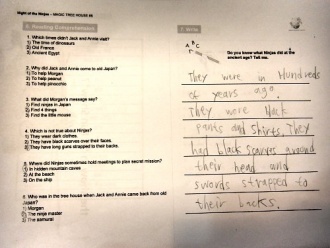 Night of the Ninjas - MAGIC TREE HOUSE #5
Reading Comprehension
1. Which times didn't Jack and Annie visit?
1) The time of dinosaurs
2) Old France
3) Ancient Egypt
2. Why did Jack and Annie come to old Japan?
1) To help Morgan
2) To help peanut
3) To help pinocchio
3. What did Morgan's message say?
1) Find ninjas in Japan
2) Find 4 things
3) Find the little mouse
4. Which is not true about Ninjas?
1) They wear dark clothes.
2) They have black scarves over their faces.
3) They have long guns strapped to their backs.
5. Where did Ninjas sometimes hold meetings to plan secret mission?
1) In hidden mountain caves
2) At the beach
3) On the ship
6. Who was in the tree house when Jack and Annie came back from old
Japan?
1) Morgan
2) The ninja master
3) The samurai
7. Write
A B C
Do you know what Ninjas did at
ancient age? Tell me.
They were in Hundreds
of years ago.
They wore black
pants and shirts. They
had black scarves around
their head and
swords strapped to
their backs.